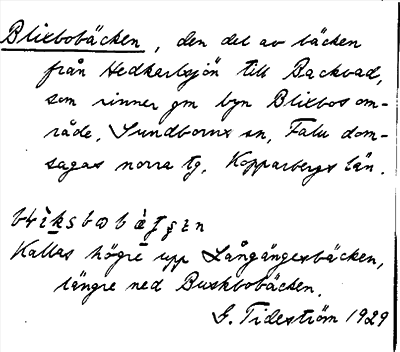 Blixbobäcken, den del av bäcken
från Hedkarlssjön till Backvad,
som rinner gm byn Blixbos om-
råde, Sundborns sn, Falu dom-
sagas norra tg, Kopparbergs län.
Kallas högre upp Långängesbäcken,
längre ned Buskbobäcken.
G. Tideström 1929